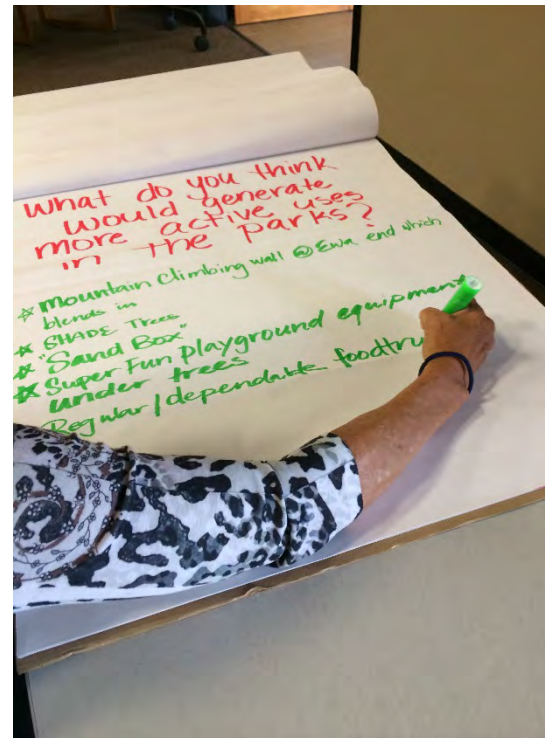 What do you think
would generate
more active uses
in the parks?
☆ Mountain Climbing wall @ Ewa end which
blends in
☆ SHADE Trees
☆ "Sand Box"
☆ Super Fun playground equipment
under trees
Regular/dependable foodtru